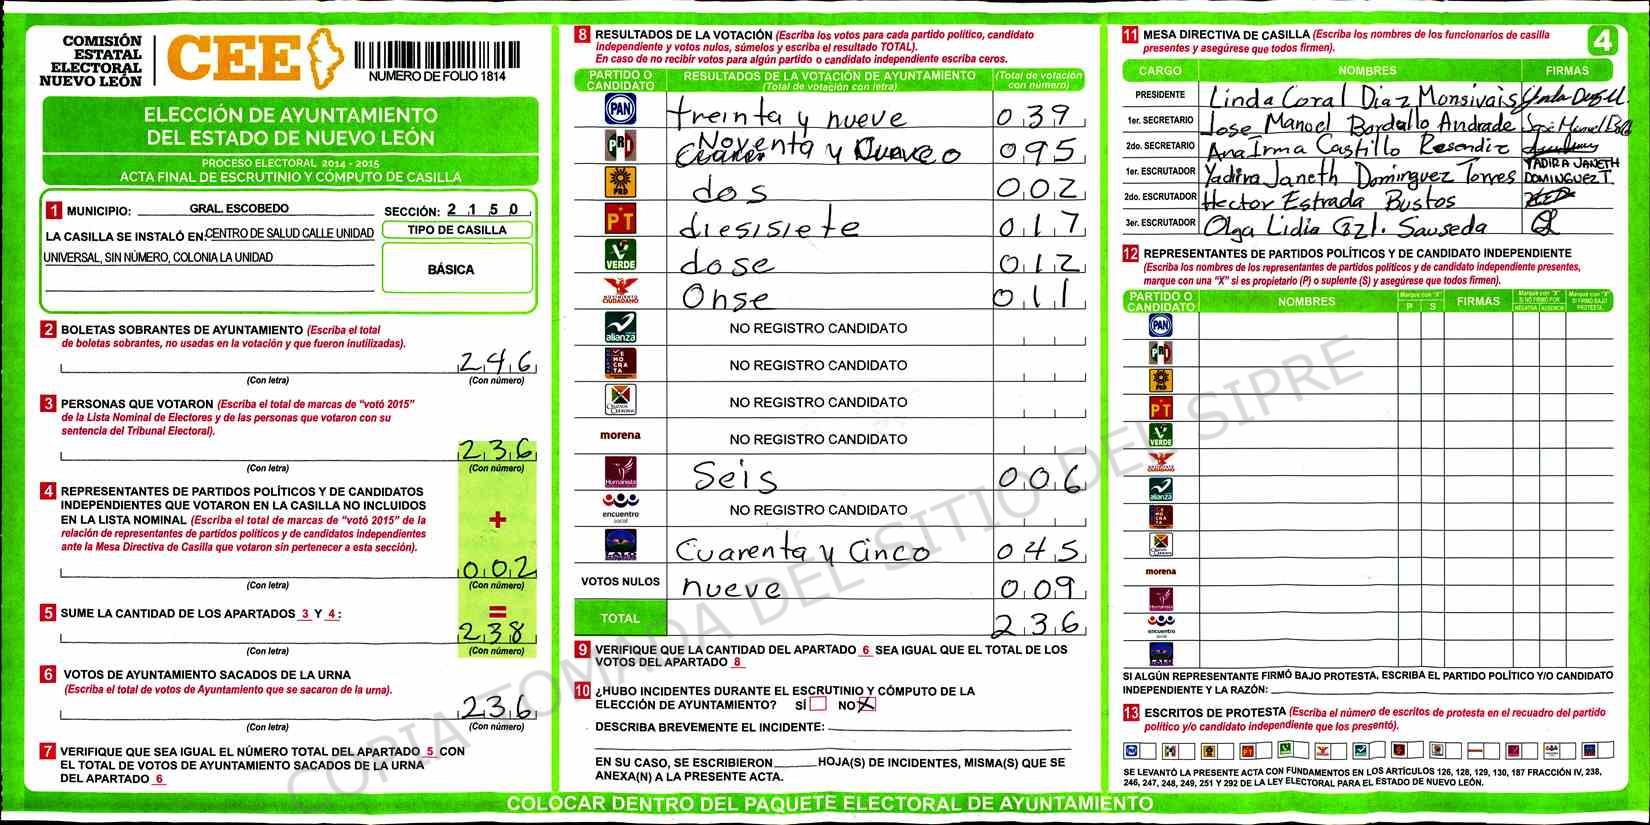 COMISIÓN
ESTATAL
ELECTORAL
NUEVO LEÓN
CEE
NUMERO DE FOLIO 1814
ELECCIÓN DE AYUNTAMIENTO
DEL ESTADO DE NUEVO LEÓN
PROCESO ELECTORAL 2014 - 2015
ACTA FINAL DE ESCRUTINIO Y CÓMPUTO DE CASILLA
1 MUNICIPIO: GRAL. ESCOBEDO SECCIÓN: 2 1 5 0
LA CASILLA SE INSTALÓ EN: CENTRO DE SALUD CALLE UNIDAD
UNIVERSAL, SIN NÚMERO, COLONIA LA UNIDAD
TIPO DE CASILLA
BÁSICA
2 BOLETAS SOBRANTES DE AYUNTAMIENTO (Escriba el total
de boletas sobrantes, no usadas en la votación y que fueron inutilizadas).
246
(Con letra) (Con número)
3 PERSONAS QUE VOTARON (Escriba el total de marcas de "votó 2015"
de la Lista Nominal de Electores y de las personas que votaron con su
sentencia del Tribunal Electoral).
236
(Con letra) (Con número)
4 REPRESENTANTES DE PARTIDOS POLÍTICOS Y DE CANDIDATOS
INDEPENDIENTES QUE VOTARON EN LA CASILLA NO INCLUIDOS
EN LA LISTA NOMINAL (Escriba el total de marcas de "votó 2015" de la
relación de representantes de partidos políticos y de candidatos independientes
ante la Mesa Directiva de Casilla que votaron sin pertenecer a esta sección).
+
002
(Con letra) (Con número)
5 SUME LA CANTIDAD DE LOS APARTADOS 3 Y 4 :
=
238
(Con letra) (Con número)
6 VOTOS DE AYUNTAMIENTO SACADOS DE LA URNA
(Escriba el total de votos de Ayuntamiento que se sacaron de la urna).
236
(Con letra) (Con número)
7 VERIFIQUE QUE SEA IGUAL EL NÚMERO TOTAL DEL APARTADO 5 CON
EL TOTAL DE VOTOS DE AYUNTAMIENTO SACADOS DE LA URNA
DEL APARTADO 6
8 RESULTADOS DE LA VOTACIÓN (Escriba los votos para cada partido político, candidato
independiente y votos nulos, súmelos y escriba el resultado TOTAL).
En caso de no recibir votos para algún partido o candidato independiente escriba ceros.
PARTIDO O CANDIDATO RESULTADOS DE LA VOTACIÓN DE AYUNTAMIENTO (Total de votación con letra) (Total de votación con número)
PAN treinta y nueve 039
PRI Noventa y 095
PRD dos 002
PT diesisiete 017
VERDE dose 012
MOVIMIENTO CIUDADANO Onse 011
alianza NO REGISTRO CANDIDATO
NO REGISTRO CANDIDATO
NO REGISTRO CANDIDATO
morena NO REGISTRO CANDIDATO
Humanista Seis 006
encuentro social NO REGISTRO CANDIDATO
Cuarenta y Cinco 045
VOTOS NULOS nueve 009
TOTAL 236
9 VERIFIQUE QUE LA CANTIDAD DEL APARTADO 6 SEA IGUAL QUE EL TOTAL DE LOS
VOTOS DEL APARTADO 8
10 ¿HUBO INCIDENTES DURANTE EL ESCRUTINIO Y CÓMPUTO DE LA
ELECCIÓN DE AYUNTAMIENTO? SÍ NO X
DESCRIBA BREVEMENTE EL INCIDENTE:
EN SU CASO, SE ESCRIBIERON HOJA(S) DE INCIDENTES, MISMA(S) QUE SE
ANEXA(N) A LA PRESENTE ACTA.
11 MESA DIRECTIVA DE CASILLA (Escriba los nombres de los funcionarios de casilla
presentes y asegúrese que todos firmen).
4
CARGO NOMBRES FIRMAS
PRESIDENTE Linda Coral Diaz Monsivais
1er. SECRETARIO Jose Manoel Bordallo Andrade
2do. SECRETARIO Ana Irma Castillo Resendiz
1er. ESCRUTADOR Yadira Janeth Dominguez Torres YADIRA JANETH DOMINGUEZ T.
2do. ESCRUTADOR Hector Estrada Bustos
3er. ESCRUTADOR Olga Lidia Gzl. Sauseda
12 REPRESENTANTES DE PARTIDOS POLÍTICOS Y DE CANDIDATO INDEPENDIENTE
(Escriba los nombres de los representantes de partidos políticos y de candidato independiente presentes,
marque con una "X" si es propietario (P) o suplente (S) y asegúrese que todos firmen).
PARTIDO O CANDIDATO NOMBRES Marque con "X" P S FIRMAS Marque con "X" SI NO FIRMÓ POR NEGATIVA AUSENCIA Marque con "X" SI FIRMÓ BAJO PROTESTA
PAN
PRI
PRD
PT
VERDE
alianza
morena
Humanista
encuentro social
SI ALGÚN REPRESENTANTE FIRMÓ BAJO PROTESTA, ESCRIBA EL PARTIDO POLÍTICO Y/O CANDIDATO
INDEPENDIENTE Y LA RAZÓN:
13 ESCRITOS DE PROTESTA (Escriba el número de escritos de protesta en el recuadro del partido
político y/o candidato independiente que los presentó).
SE LEVANTÓ LA PRESENTE ACTA CON FUNDAMENTOS EN LOS ARTÍCULOS 126, 128, 129, 130, 187 FRACCIÓN IV, 238,
246, 247, 248, 249, 251 Y 292 DE LA LEY ELECTORAL PARA EL ESTADO DE NUEVO LEÓN.
COLOCAR DENTRO DEL PAQUETE ELECTORAL DE AYUNTAMIENTO
COPIA TOMADA DEL SITIO DEL SIPRE